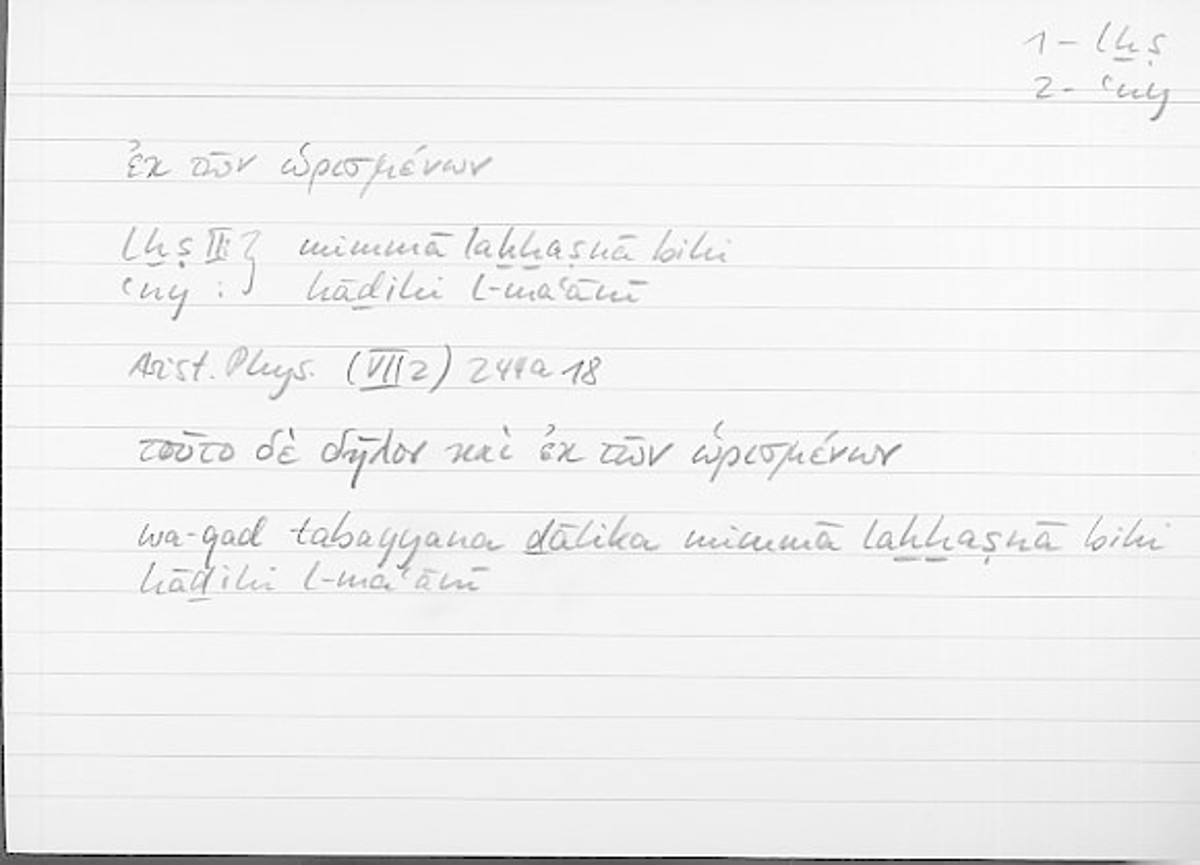 1 - lḫṣ
2 - ʿny
ἐκ τῶν ὡρισμένων
lḫṣ II: } mimmā laḫḫaṣnā bihi
ʿny : } hāḏihi l-maʿānī
Arist. Phys. (VII 2) 244a 18
τοῦτο δὲ δῆλον καὶ ἐκ τῶν ὡρισμένων
wa-qad tabayyana ḏālika mimmā laḫḫaṣnā bihi
hāḏihi l-maʿānī